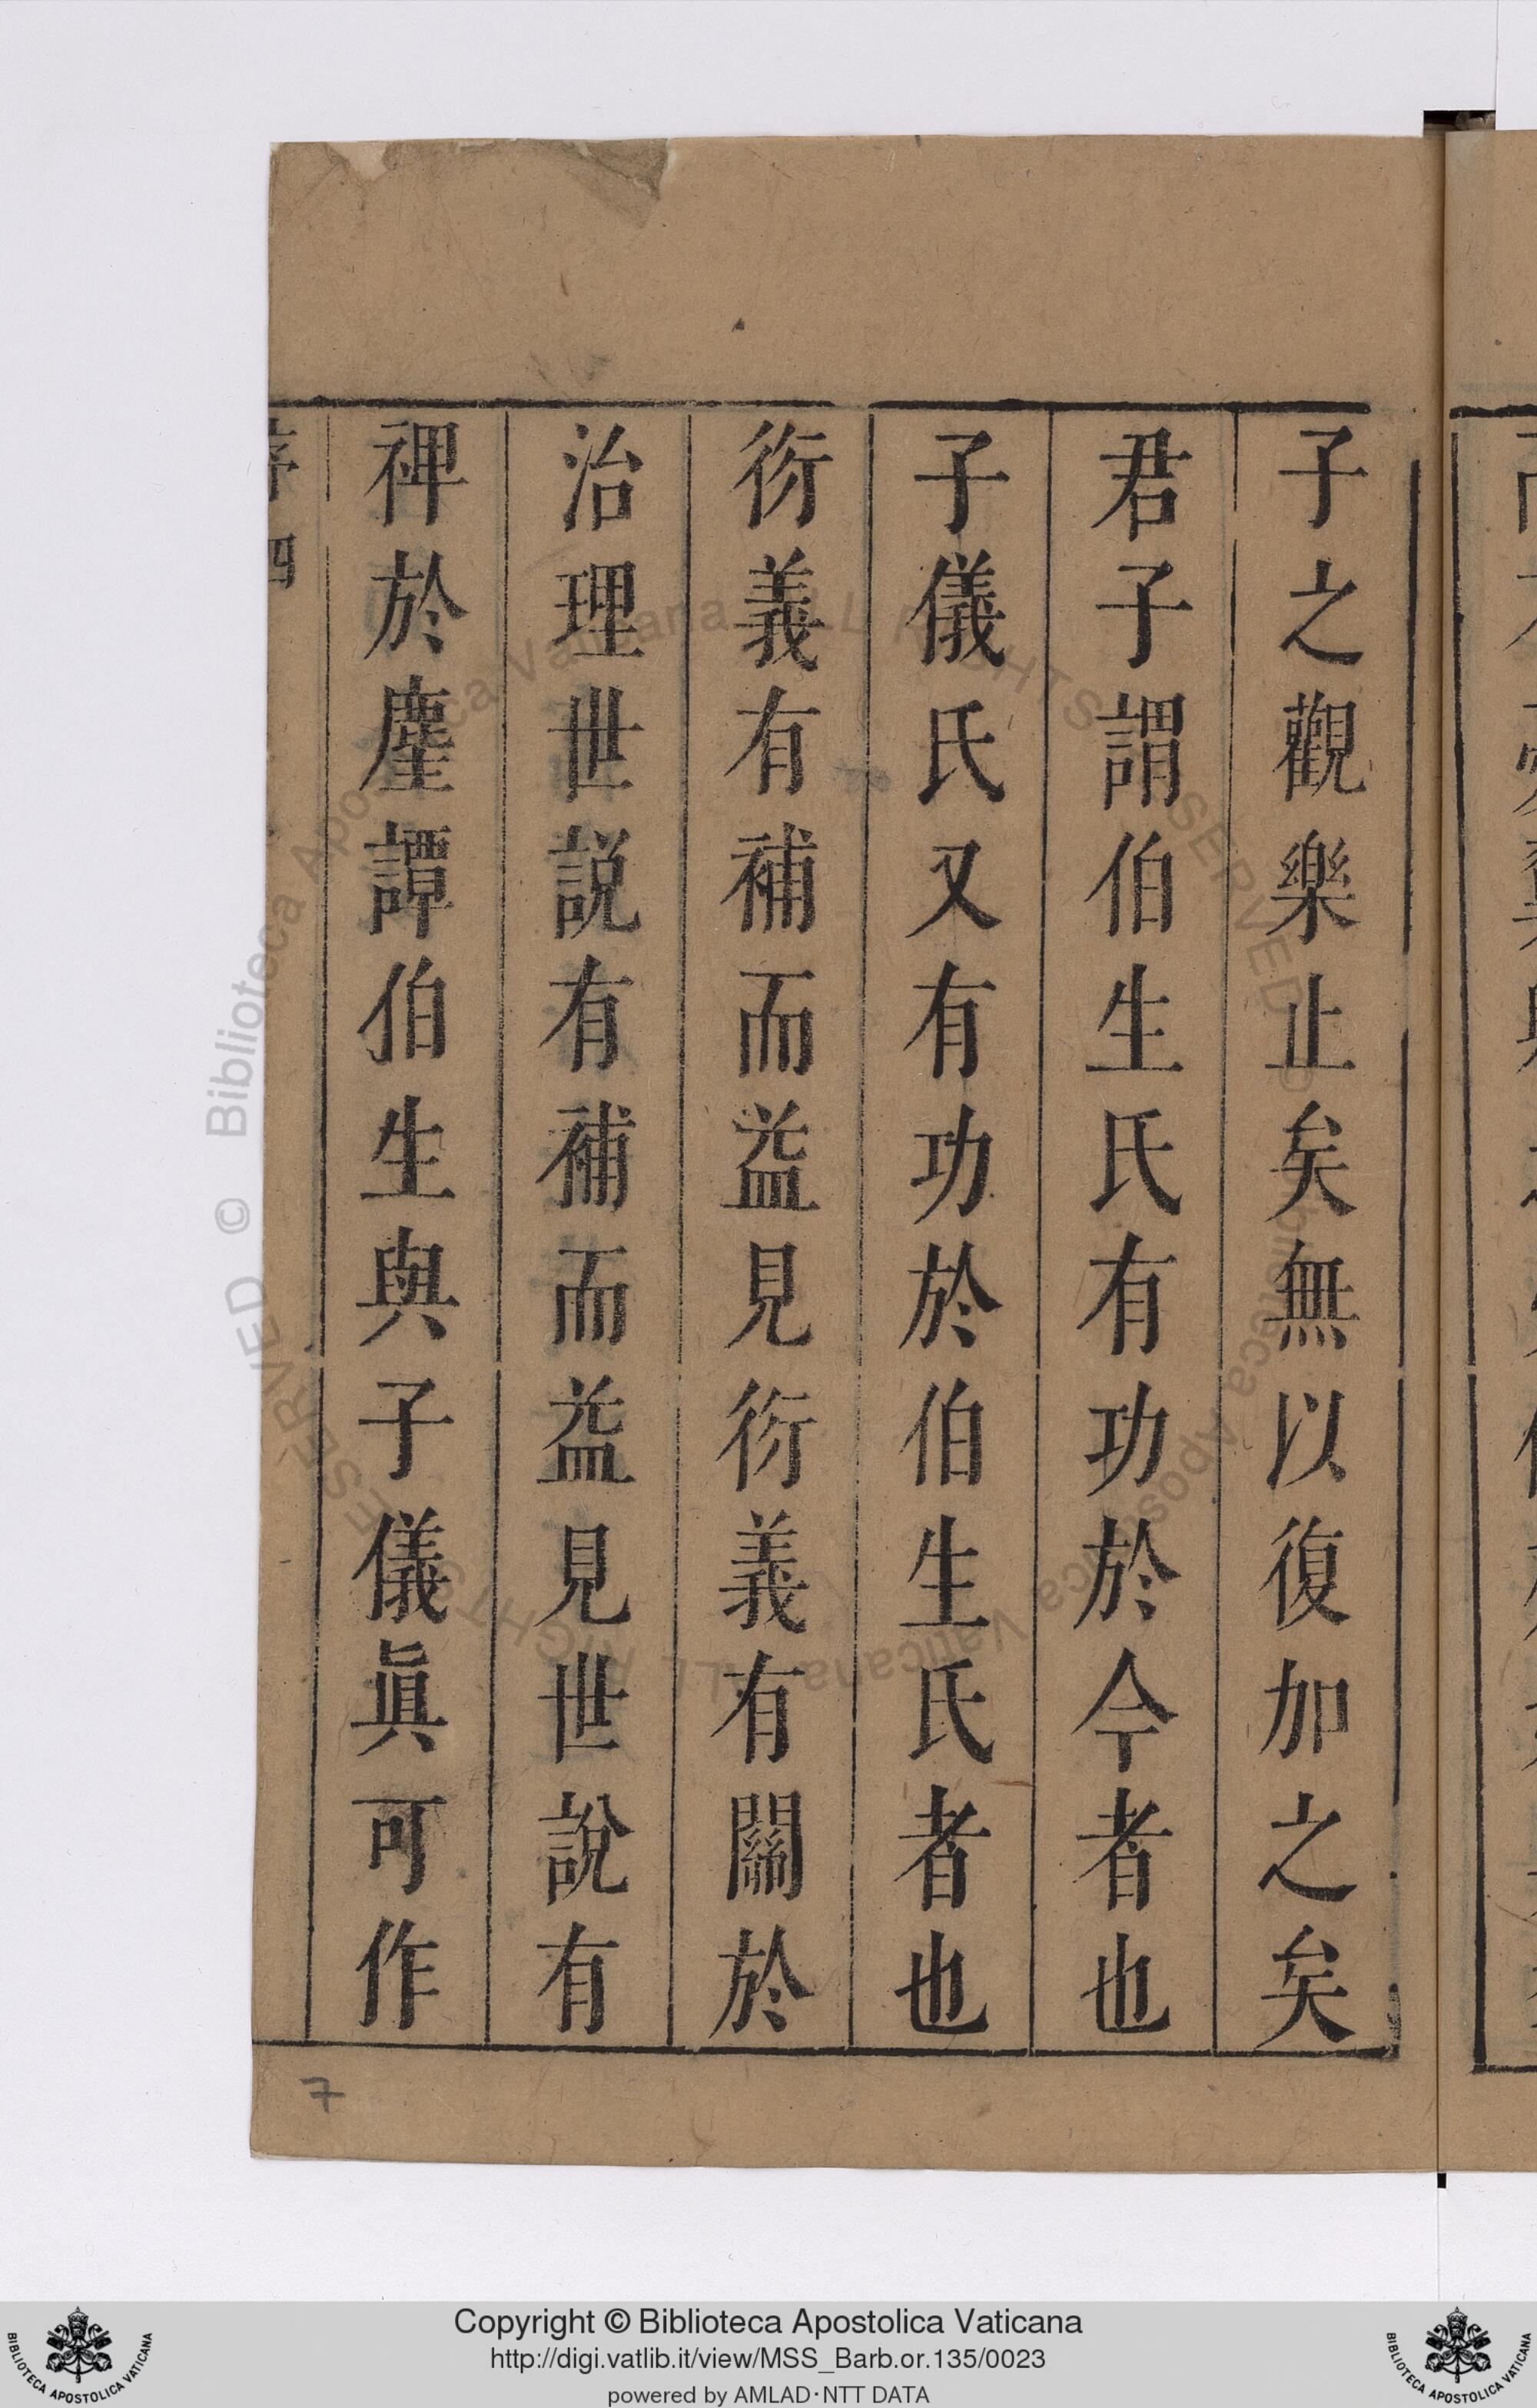 子之觀樂止矣無以復加之矣
君子謂伯生氏有功於今者也
子儀氏又有功於伯生氏者也
衍義有補而益見衍義有關於
治理世説有補而益見世說有
裨於麈譚伯生與子儀眞可作
序 四
7
Copyright © Biblioteca Apostolica Vaticana
http://digi.vatlib.it/view/MSS_Barb.or.135/0023
powered by AMLAD·NTT DATA
BIBLIOTECA APOSTOLICA VATICANA
BIBLIOTECA APOSTOLICA VATICANA
© Biblioteca Apostolica Vaticana ALL RIGHTS RESERVED © Biblioteca Apostolica Vaticana ALL RIGHTS RESERVED